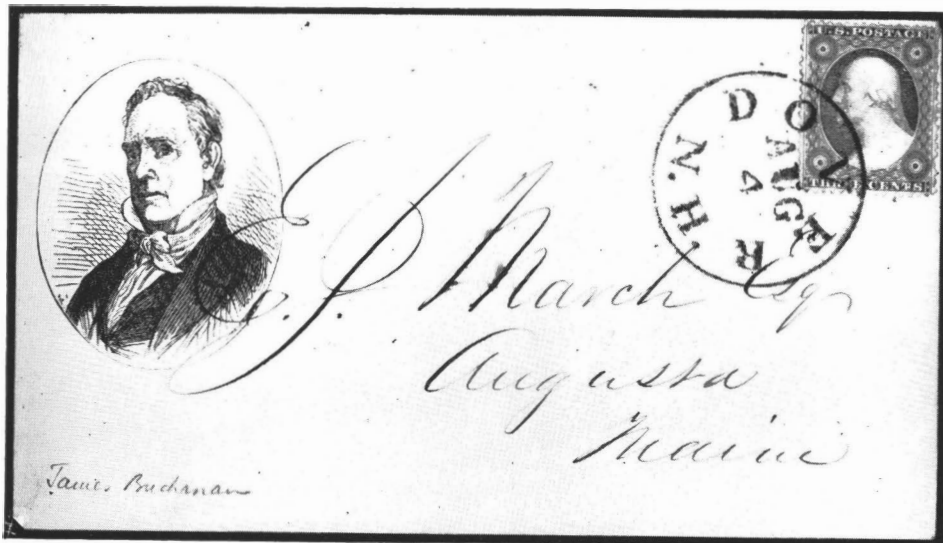 U.S. POSTAGE
THREE CENTS
DOVER
AUG
4
N.H
E. J. March Esq
Augusta
Maine
James Buchanan